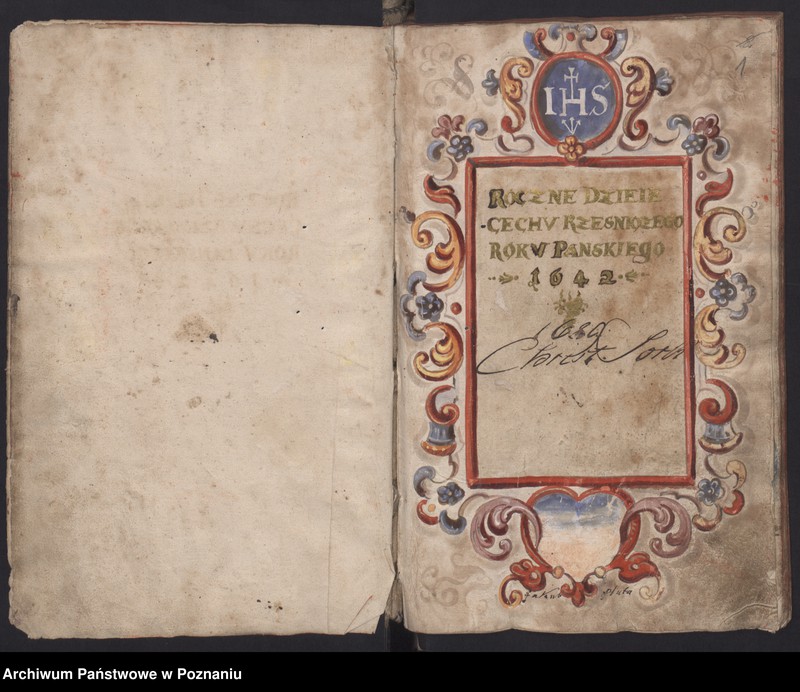 1
IHS
ROCZNE DZIEIE
CECHV RZESNICZEGO
ROKV PANSKIEGO
1642
Christ
Archiwum Państwowe w Poznaniu